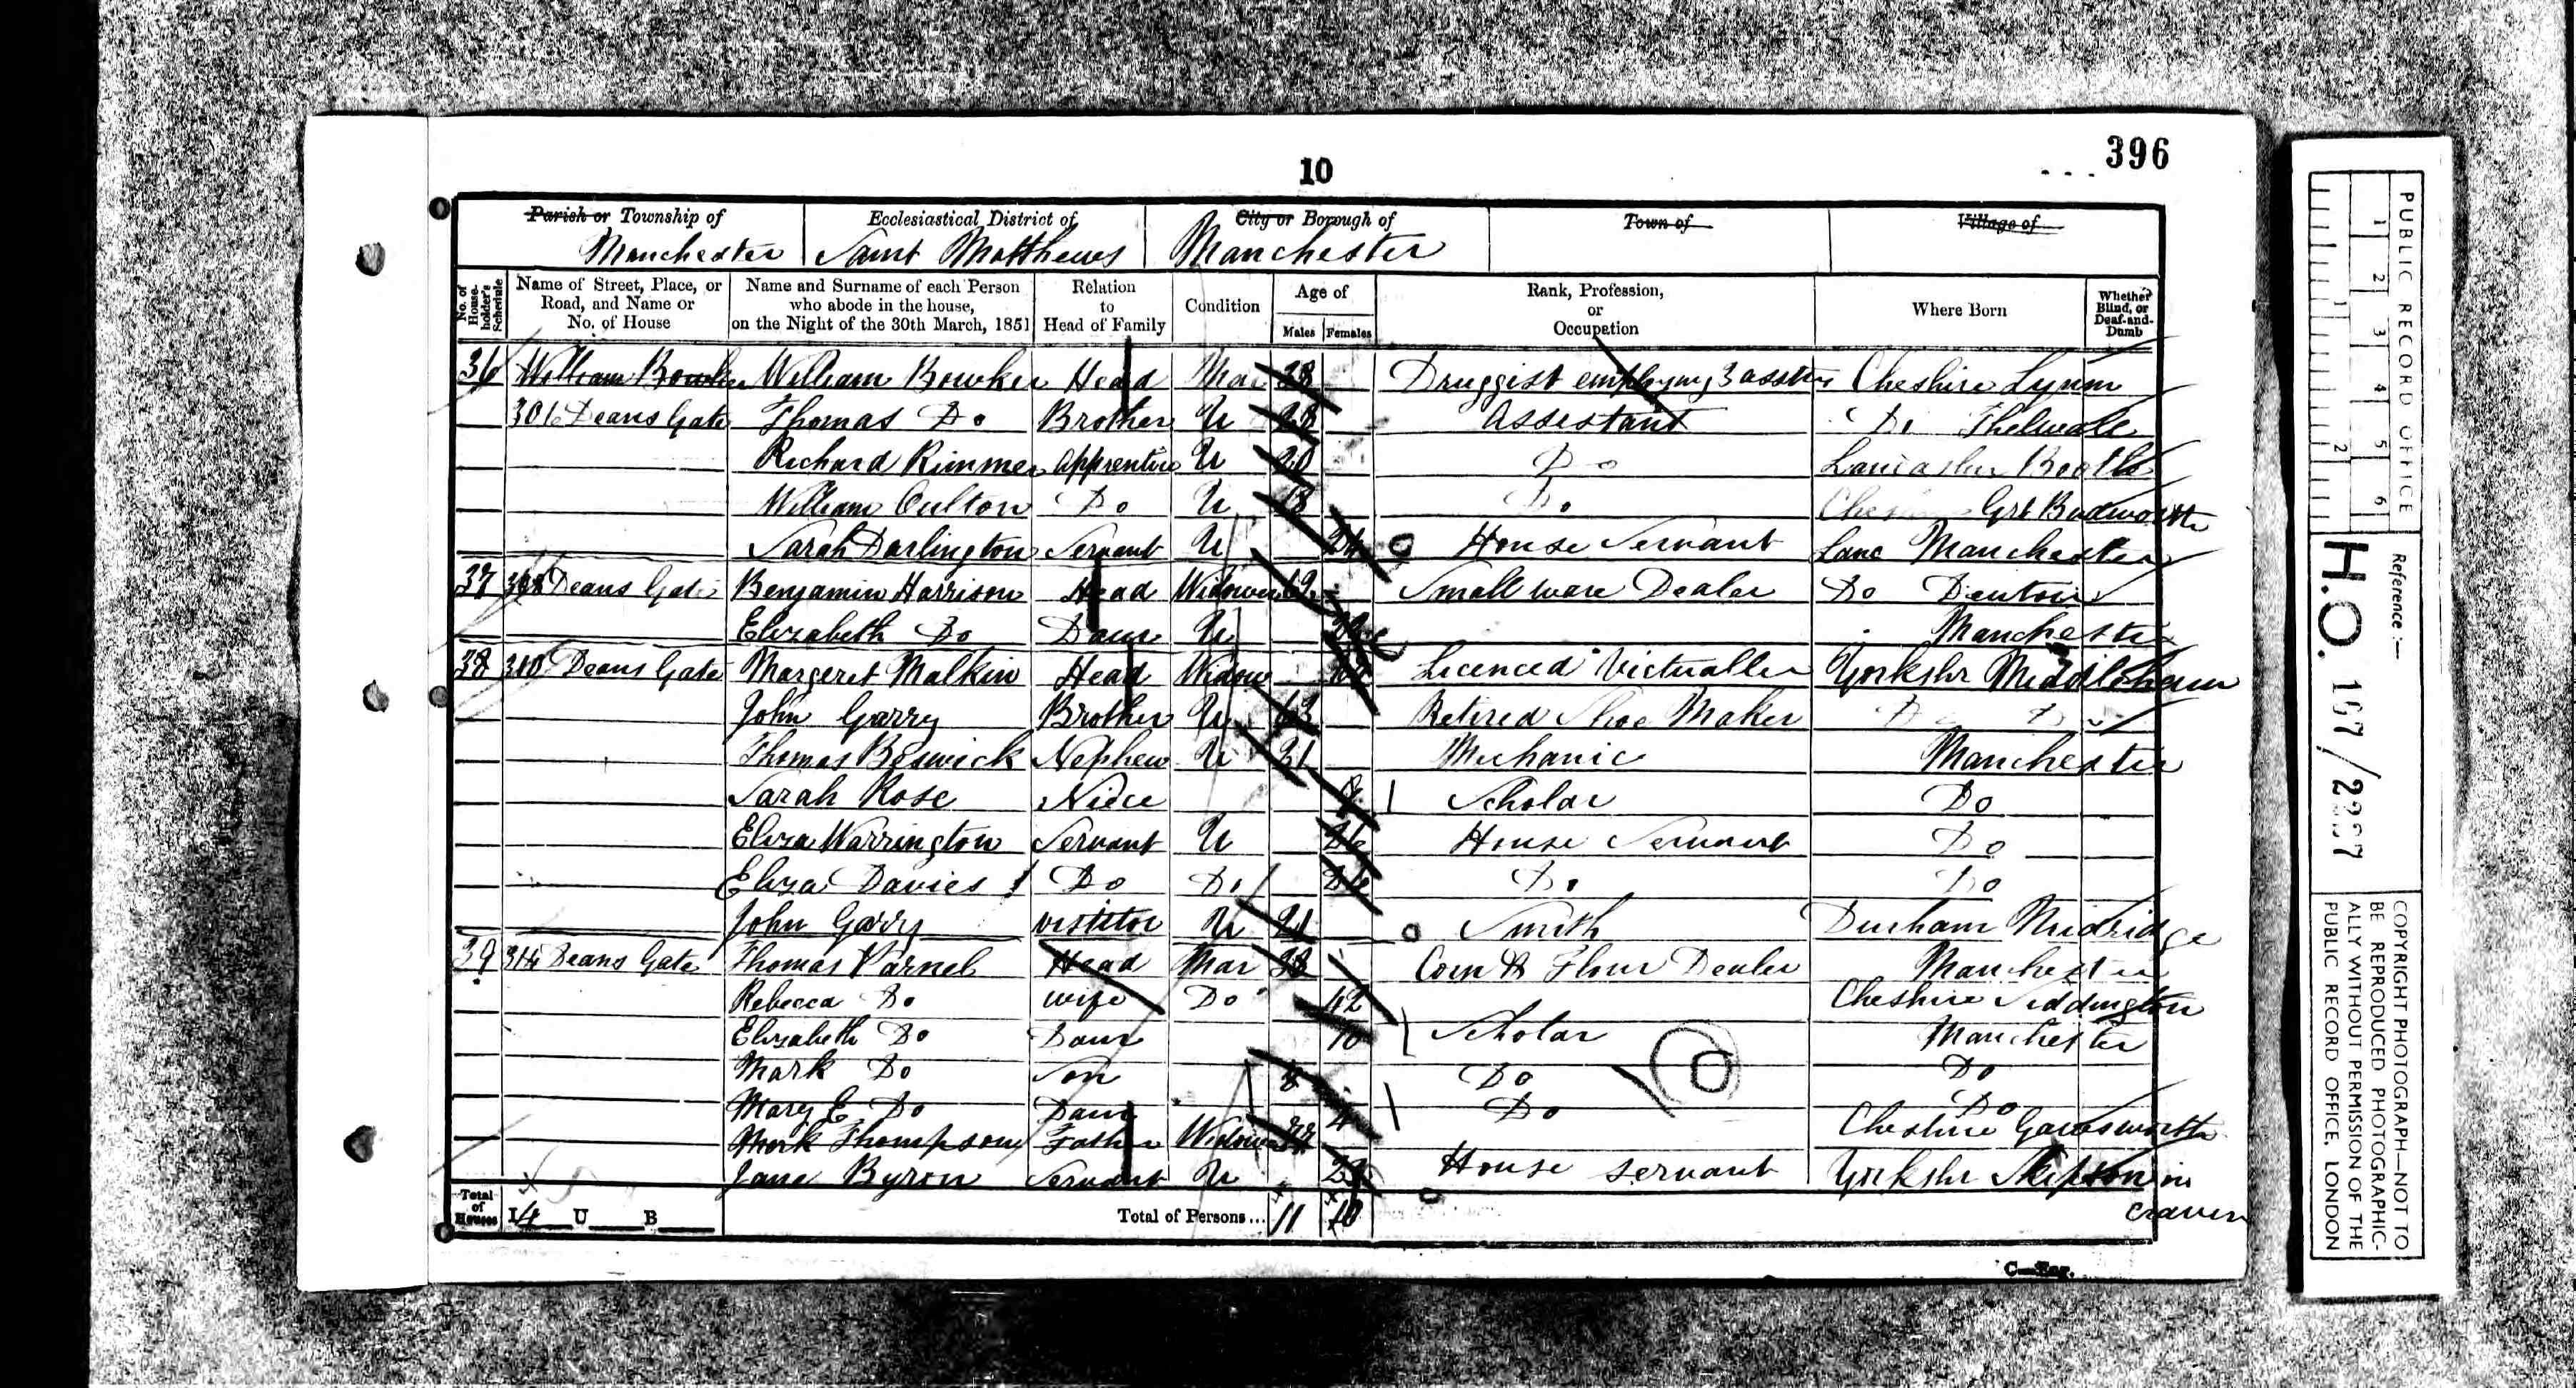 396
10
Parish or Township of Ecclesiastical District of City or Borough of Town of Village of
Manchester Saint Matthews Manchester
No. of House-holder's Schedule Name of Street, Place, or Road, and Name or No. of House Name and Surname of each Person who abode in the house, on the Night of the 30th March, 1851 Relation to Head of Family Condition Age of Males Females Rank, Profession, or Occupation Where Born Whether Blind, or Deaf-and-Dumb
36 William Bowker William Bowker Head Mar 38 Druggist employing 3 Cheshire Lymm
301 Deans Gate Thomas Do Brother U 28 Assistant Do Thelwall
Richard Rimmer Apprentice U 20 Do Bootle
William Oulton Do U 18 Do Grt Budworth
Sarah Darlington Servant U House Servant Lanc Manchester
37 308 Deans Gate Benjamin Harrison Head Widower Small ware Dealer Do Denton
Elizabeth Do Daur U Manchester
38 310 Deans Gate Margeret Malkin Head Widow Licenced Victualler Yorkshr Middleham
John Garry Brother U 63 Retired Shoe Maker Do Do
Thomas Beswick Nephew U 31 Mechanic Manchester
Sarah Rose Niece Scholar Do
Eliza Warrington Servant U House Servant Do
Eliza Davies Do Do Do Do
John Garry visititor U 21 Smith Durham Midridge
39 314 Deans Gate Thomas Parnel Head Mar 38 Corn & Flour Dealer Manchester
Rebecca Do wife Do 42 Cheshire Siddington
Elizabeth Do Daur 10 Scholar Manchester
Mark Do Son 8 Do Do
Mary E Do Daur 4 Do Do
Mark Thompson Father Widower 77 Cheshire Gawsworth
Jane Byron Servant U House servant Yorkshr Skipton in
craven
Total of Houses I 4 U B Total of Persons... 11 10
C—Eng.
PUBLIC RECORD OFFICE
1 2 3 4 5 6
1 2
Reference:—
H.O. 107/2227
COPYRIGHT PHOTOGRAPH—NOT TO
BE REPRODUCED PHOTOGRAPHIC-
ALLY WITHOUT PERMISSION OF THE
PUBLIC RECORD OFFICE, LONDON